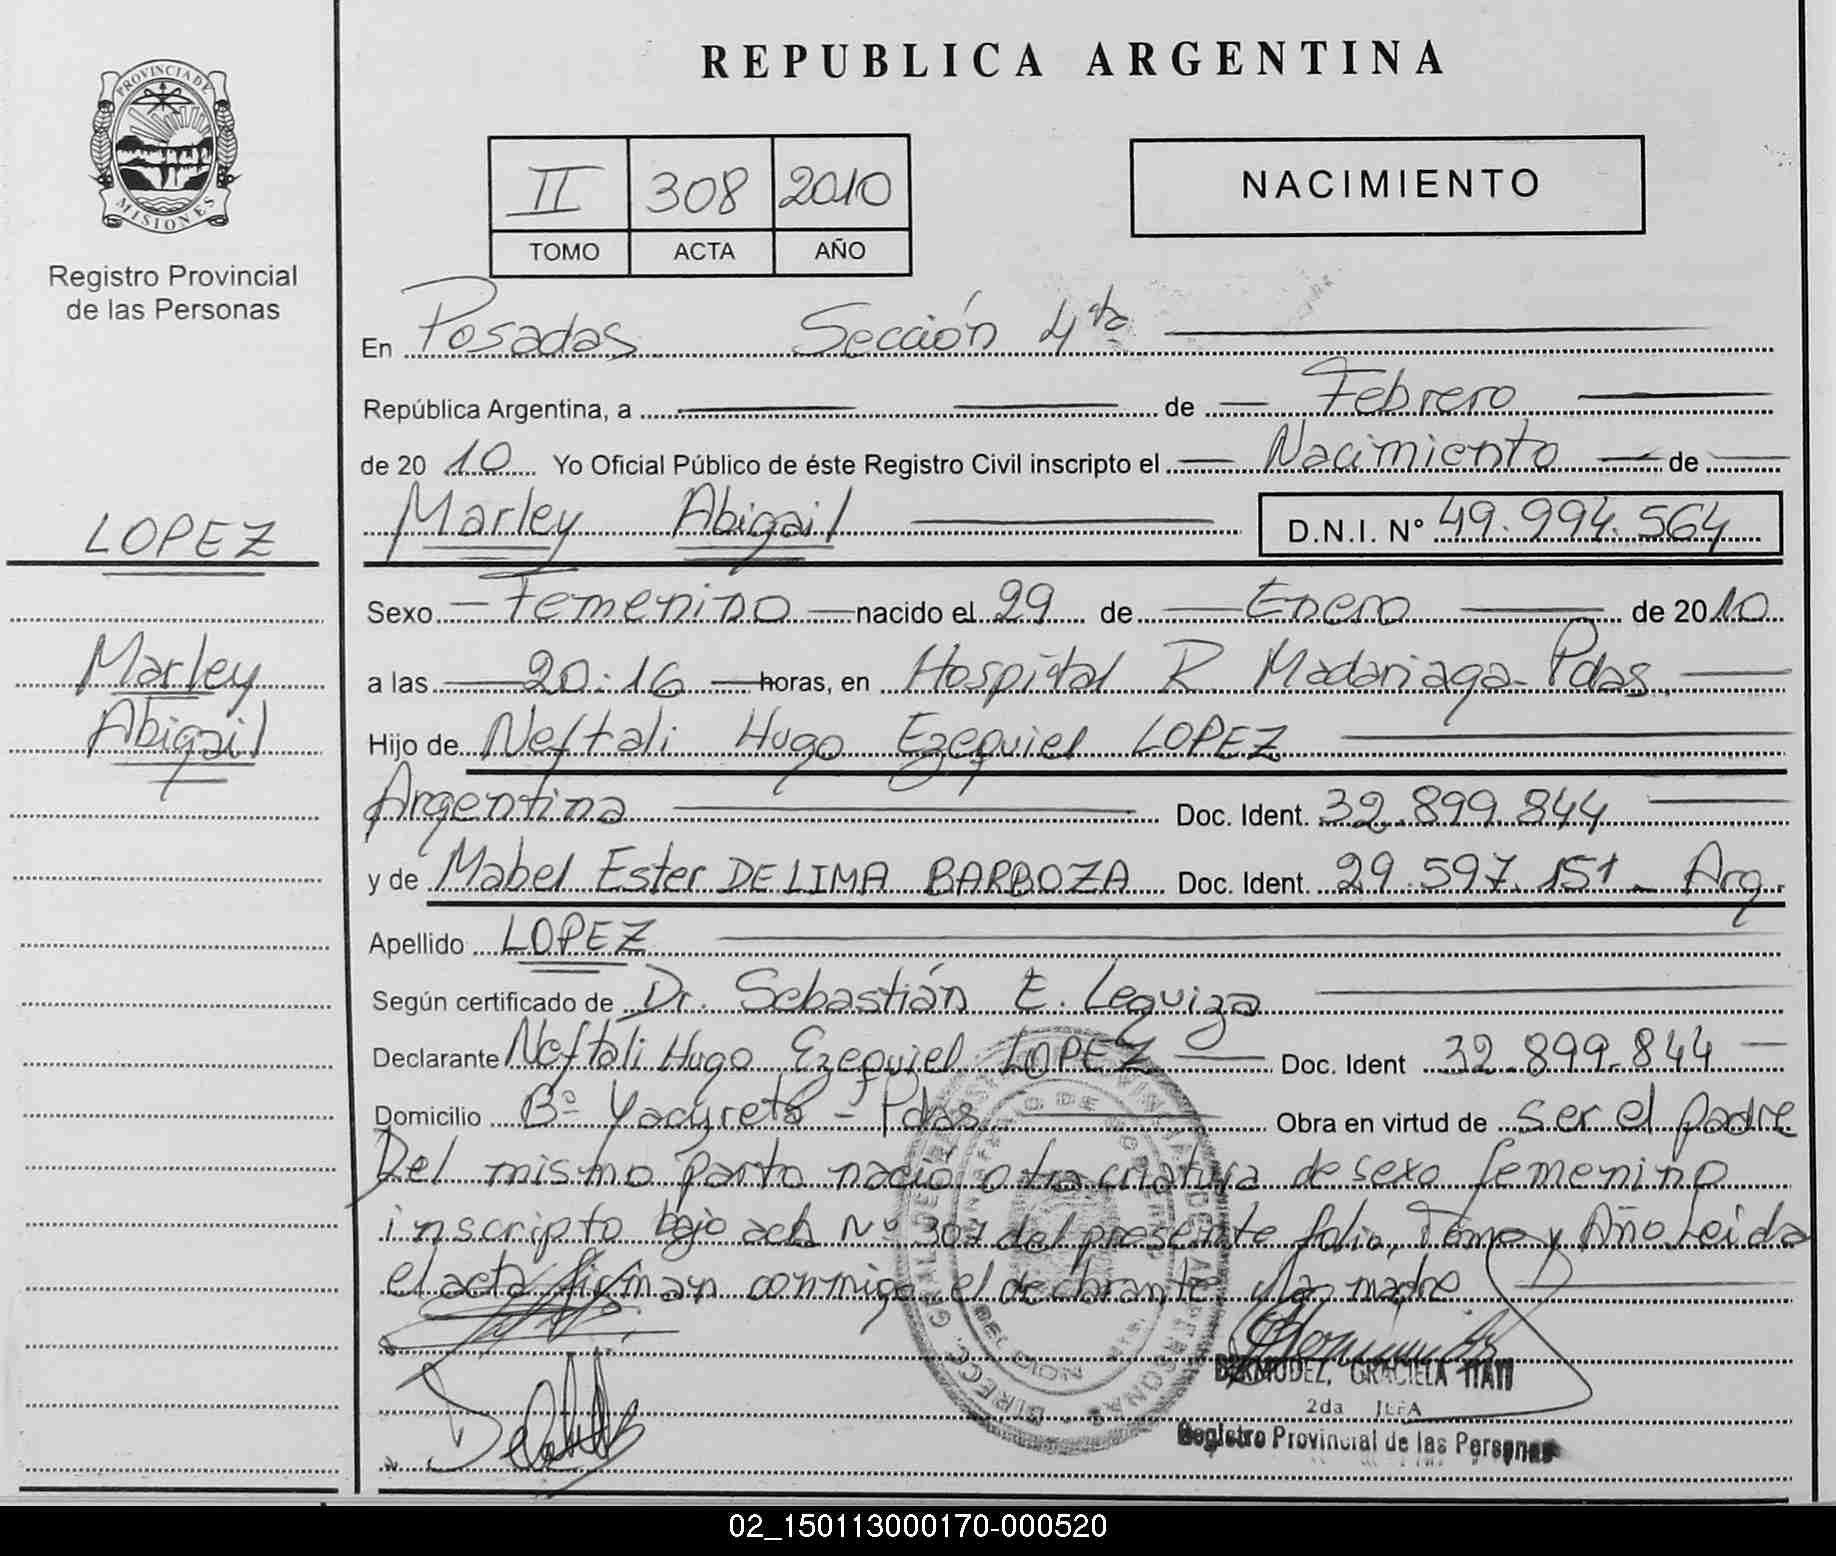 REPUBLICA ARGENTINA
PROVINCIA DE
MISIONES
Registro Provincial
de las Personas
II 308 2010
TOMO ACTA AÑO
NACIMIENTO
En Posadas Sección 4ta
República Argentina, a de Febrero
de 2010 Yo Oficial Público de éste Registro Civil inscripto el Nacimiento de
Marley Abigail D.N.I. Nº 49.994.564
LOPEZ
Marley
Abigail
Sexo Femenino nacido el 29 de Enero de 2010
a las 20:16 horas, en Hospital R. Madariaga - Pdas.
Hijo de Neftali Hugo Ezequiel LOPEZ
Argentina Doc. Ident. 32.899.844
y de Mabel Ester DE LIMA BARBOZA Doc. Ident. 29.597.151 - Arg.
Apellido LOPEZ
Según certificado de Dr. Sebastián E. Leguiza
Declarante Neftali Hugo Ezequiel LOPEZ Doc. Ident 32.899.844
Domicilio Bº Yacyretá - Pdas. Obra en virtud de ser el padre
Del mismo parto nació otra criatura de sexo femenino
inscripto bajo acta Nº 307 del presente folio, Tomo y Año. Leida
el acta firman conmigo el declarante y la madre
BERMUDEZ, GRACIELA ITATI
2da JEFA
Registro Provincial de las Personas
02_150113000170-000520